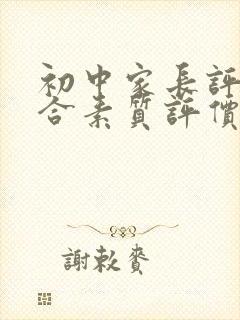 初中家長評
合素質評價
謝敕賚